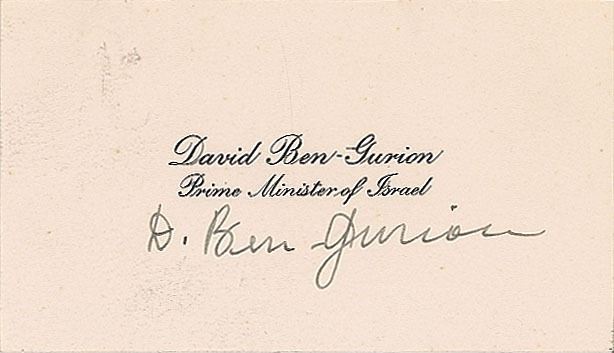 David Ben-Gurion
Prime Minister of Israel
D. Ben-Gurion